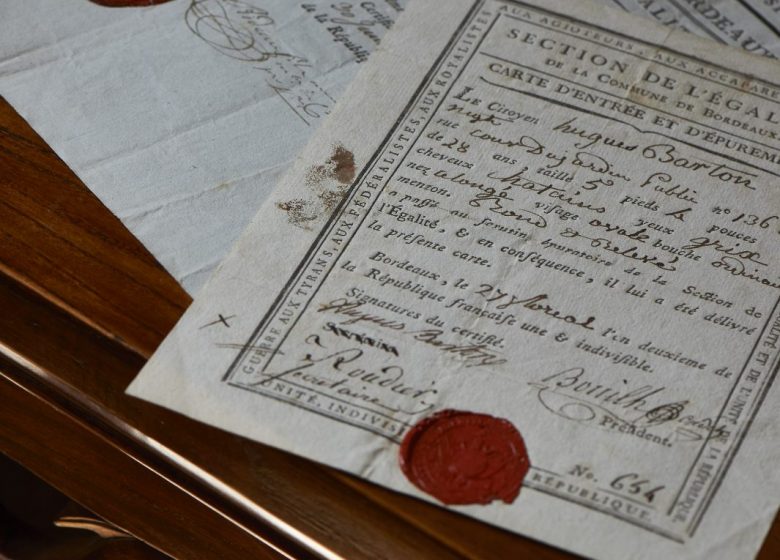 Certific
de la République
AUX AGIOTEURS, AUX ACCAPARE
SECTION DE L'ÉGAL
DE LA COMMUNE DE BORDEAUX
CARTE D'ENTRÉE ET D'ÉPUREM
LE Citoyen hugues Barton
rue cours du jardin Public n° 136
de 28 ans taille 5 pieds 4 pouces
cheveux chatains yeux gris
nez alongé visage ovale bouche ordinai
menton rond & relevé
a passé au scrutin épuratoire de la Section de
l'Égalité, & en conséquence, il lui a été délivré
la présente carte.
Bordeaux, le 27 floreal l'an deuxieme de
la République française une & indivisible.
Signatures du certifié.
Hugues Barton
Roudier
Secretaire
Président.
No. 654
GUERRE AUX TYRANS, AUX FÉDÉRALISTES, AUX ROYALISTES,
UNITÉ, INDIVISI
RÉPUBLIQUE.
ITÉ ET DE L'UNITÉ DE LA RÉPUBLIQUE.
BORDEAUX